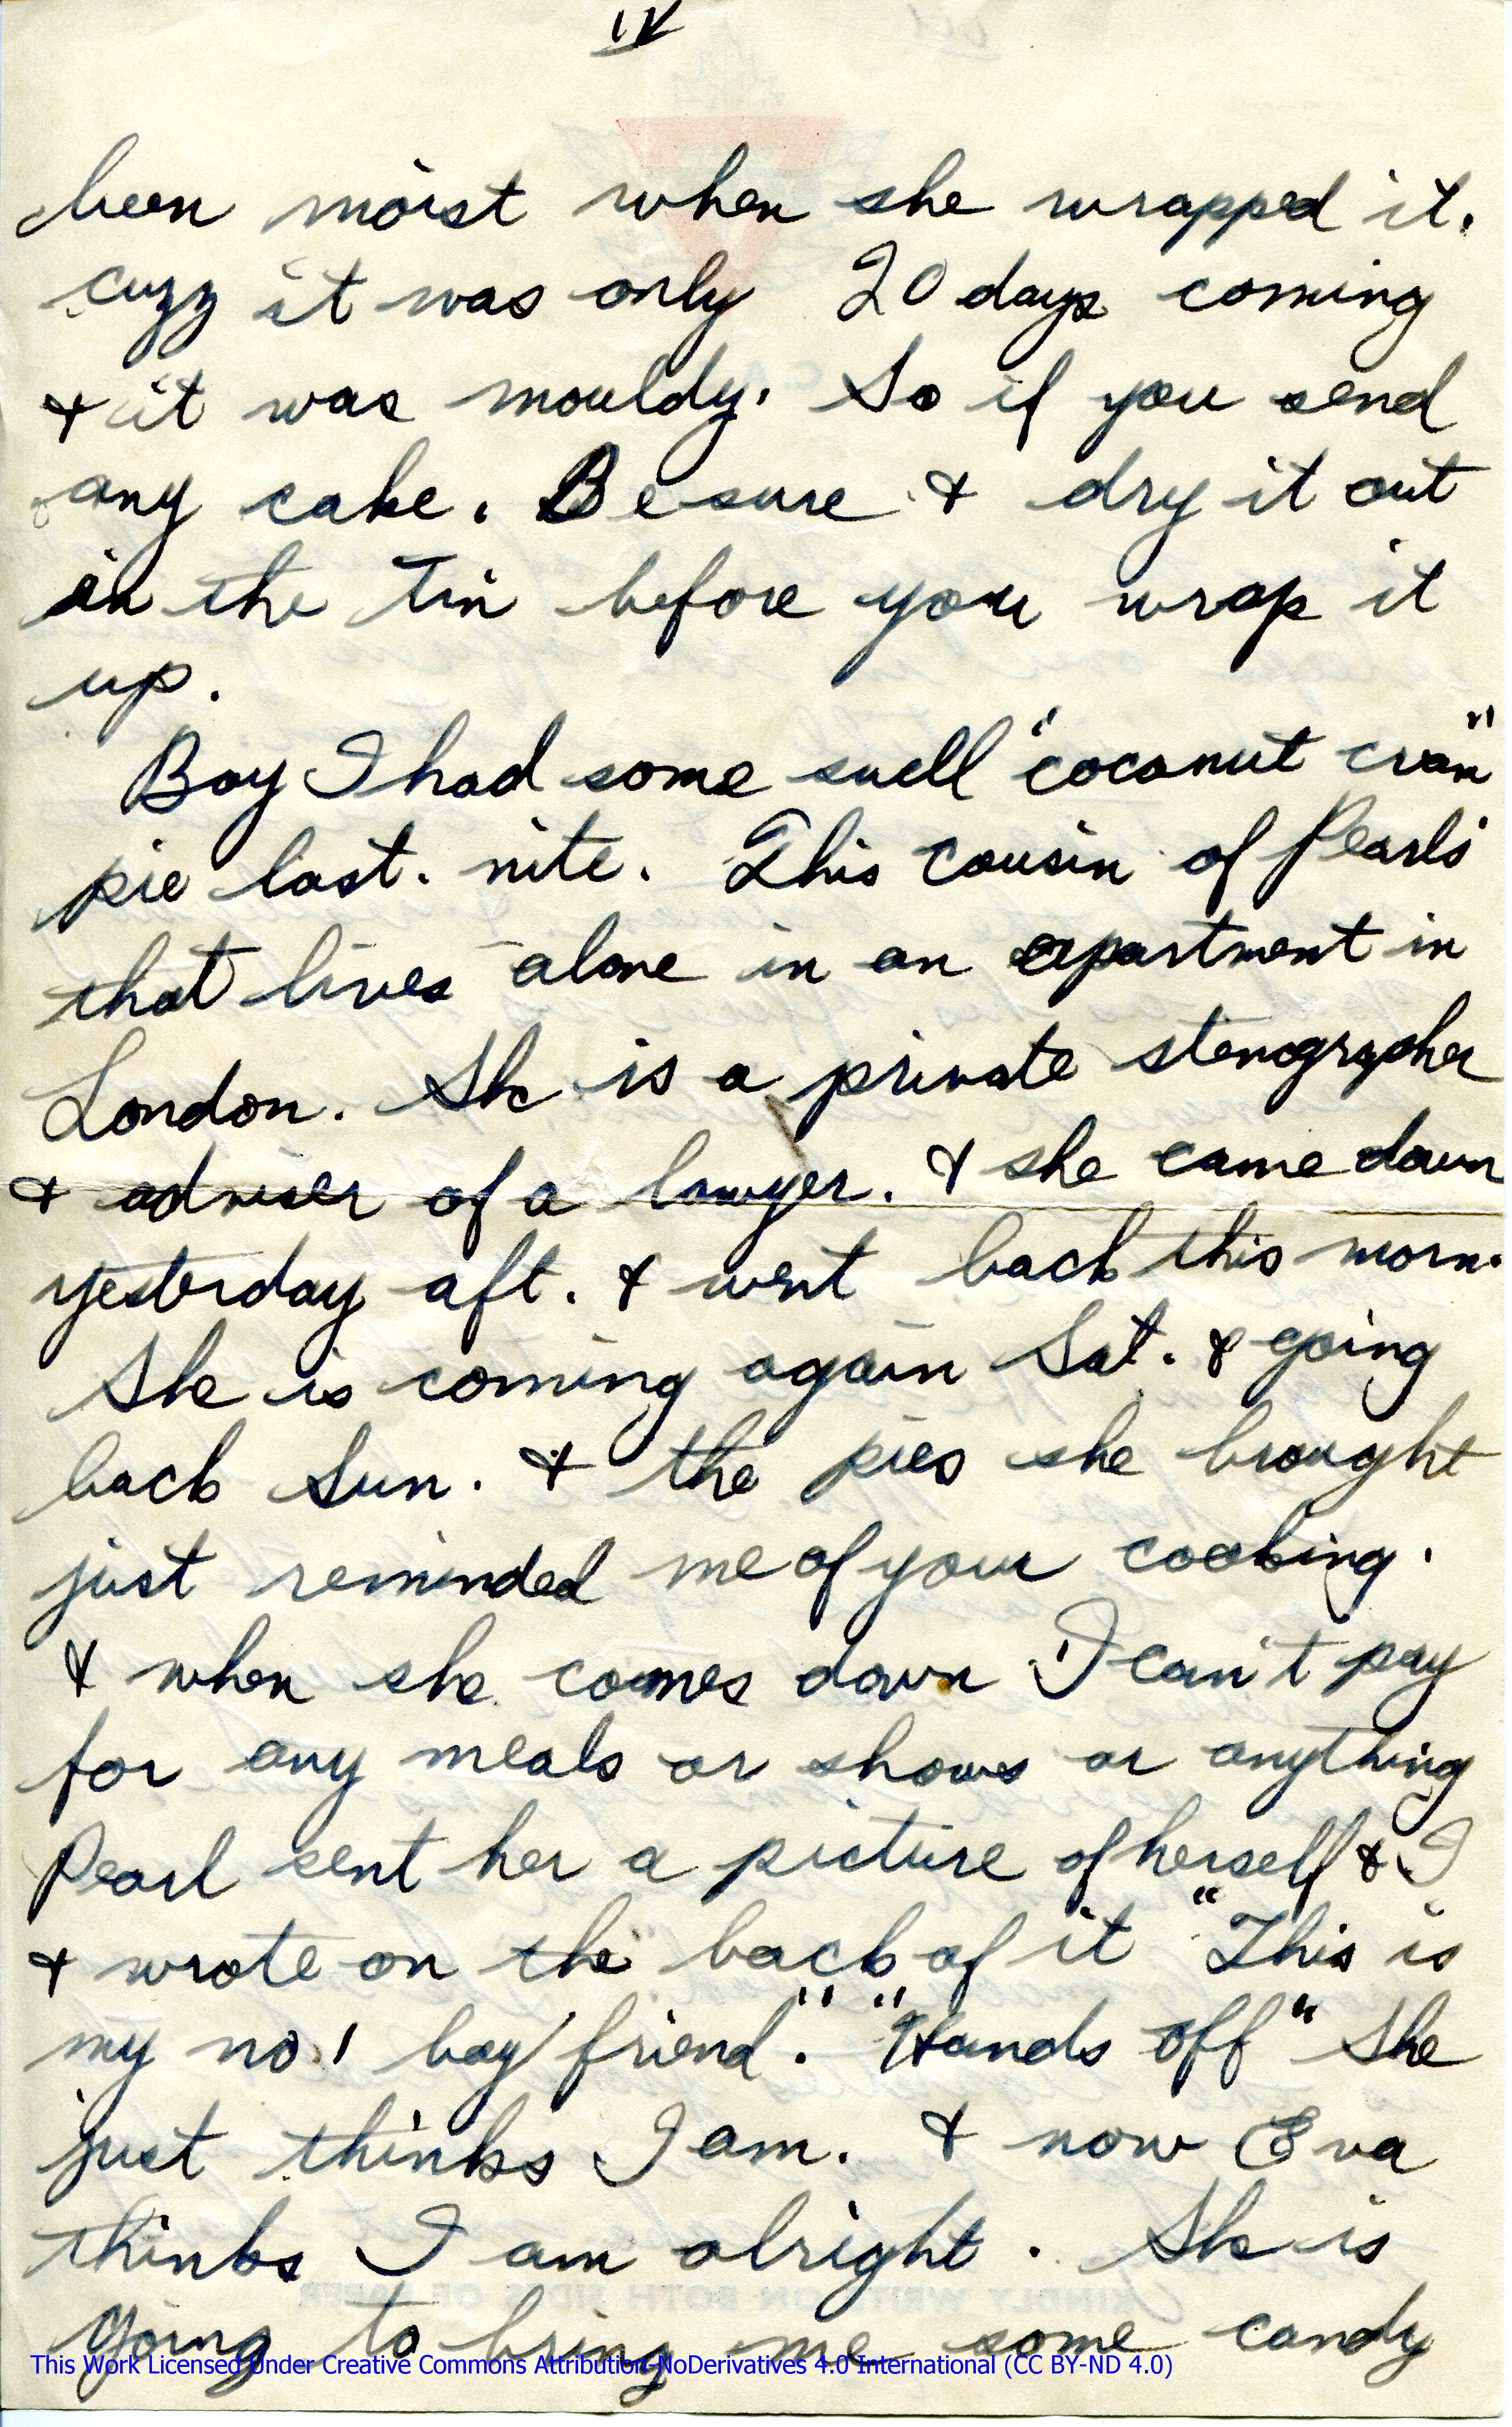 IV
been moist when she wrapped it.
cuzz it was only 20 days coming
& it was mouldy. So if you send
any cake. Be sure & dry it out
in the Tin before you wrap it
up.
Boy I had some swell "coconut cream"
pie last. nite. This cousin of Pearls
that lives alone in an apartment in
London. She is a private stenographer
& adviser of a lawyer. & she came down
yesterday aft. & went back this morn.
She is coming again Sat. & going
back Sun. & the pies she brought
just reminded me of your cooking.
& when she comes down I can't pay
for any meals or shows or anything
Pearl sent her a picture of herself & I
& wrote on the back of it "This is
my no 1 boy friend". "Hands off" She
just thinks I am. & now Eva
thinks I am alright. She is
going to bring me some candy
KINDLY WRITE ON BOTH SIDES OF PAPER
This Work Licensed Under Creative Commons Attribution-NoDerivatives 4.0 International (CC BY-ND 4.0)